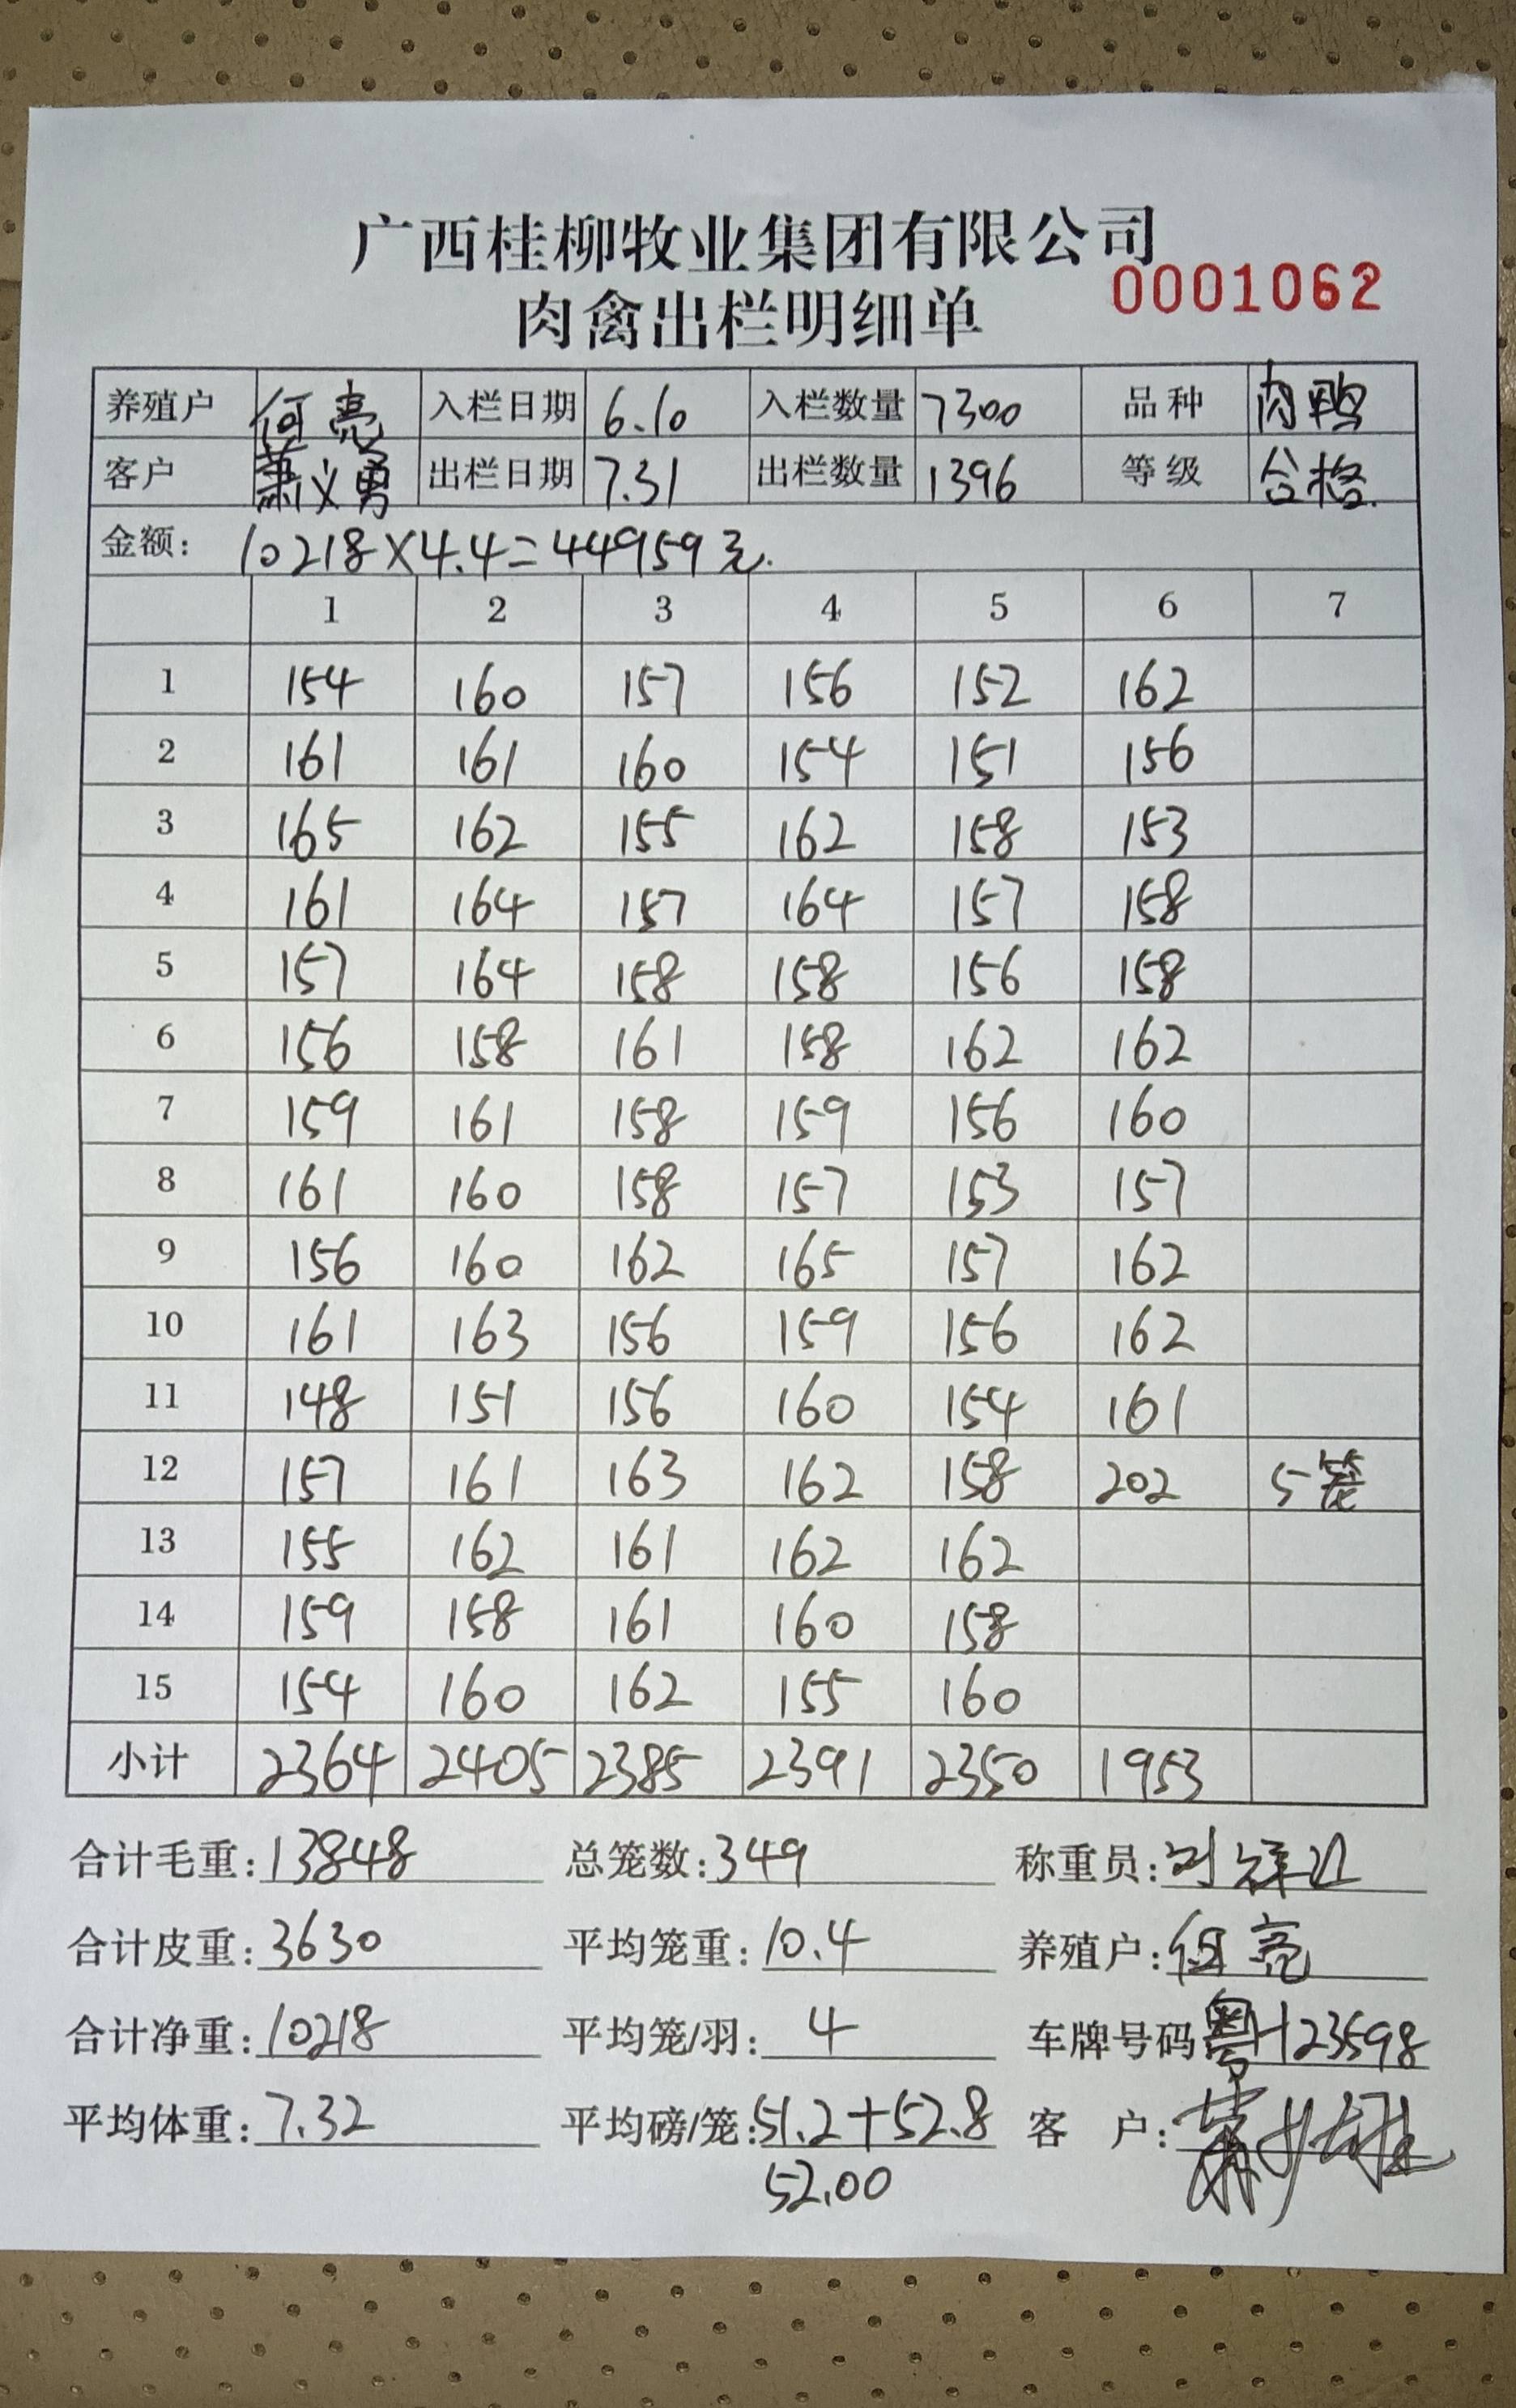 广西桂柳牧业集团有限公司
肉禽出栏明细单 0001062
养殖户 何亮 入栏日期 6.10 入栏数量 7300 品种 肉鸭
客户 萧义勇 出栏日期 7.31 出栏数量 1396 等级 合格.
金额: 10218×4.4=44959元.
1 2 3 4 5 6 7
1 154 160 157 156 152 162
2 161 161 160 154 151 156
3 165 162 155 162 158 153
4 161 164 157 164 157 158
5 157 164 158 158 156 158
6 156 158 161 158 162 162
7 159 161 158 159 156 160
8 161 160 158 157 153 157
9 156 160 162 165 157 162
10 161 163 156 159 156 162
11 148 151 156 160 154 161
12 157 161 163 162 158 202 5笼
13 155 162 161 162 162
14 159 158 161 160 158
15 154 160 162 155 160
小计 2364 2405 2385 2391 2350 1953
合计毛重:13848 总笼数:349 称重员:
合计皮重:3630 平均笼重:10.4 养殖户:何亮
合计净重:10218 平均笼/羽: 4 车牌号码粤H23598
平均体重:7.32 平均磅/笼:51.2+52.8 客 户:
52.00